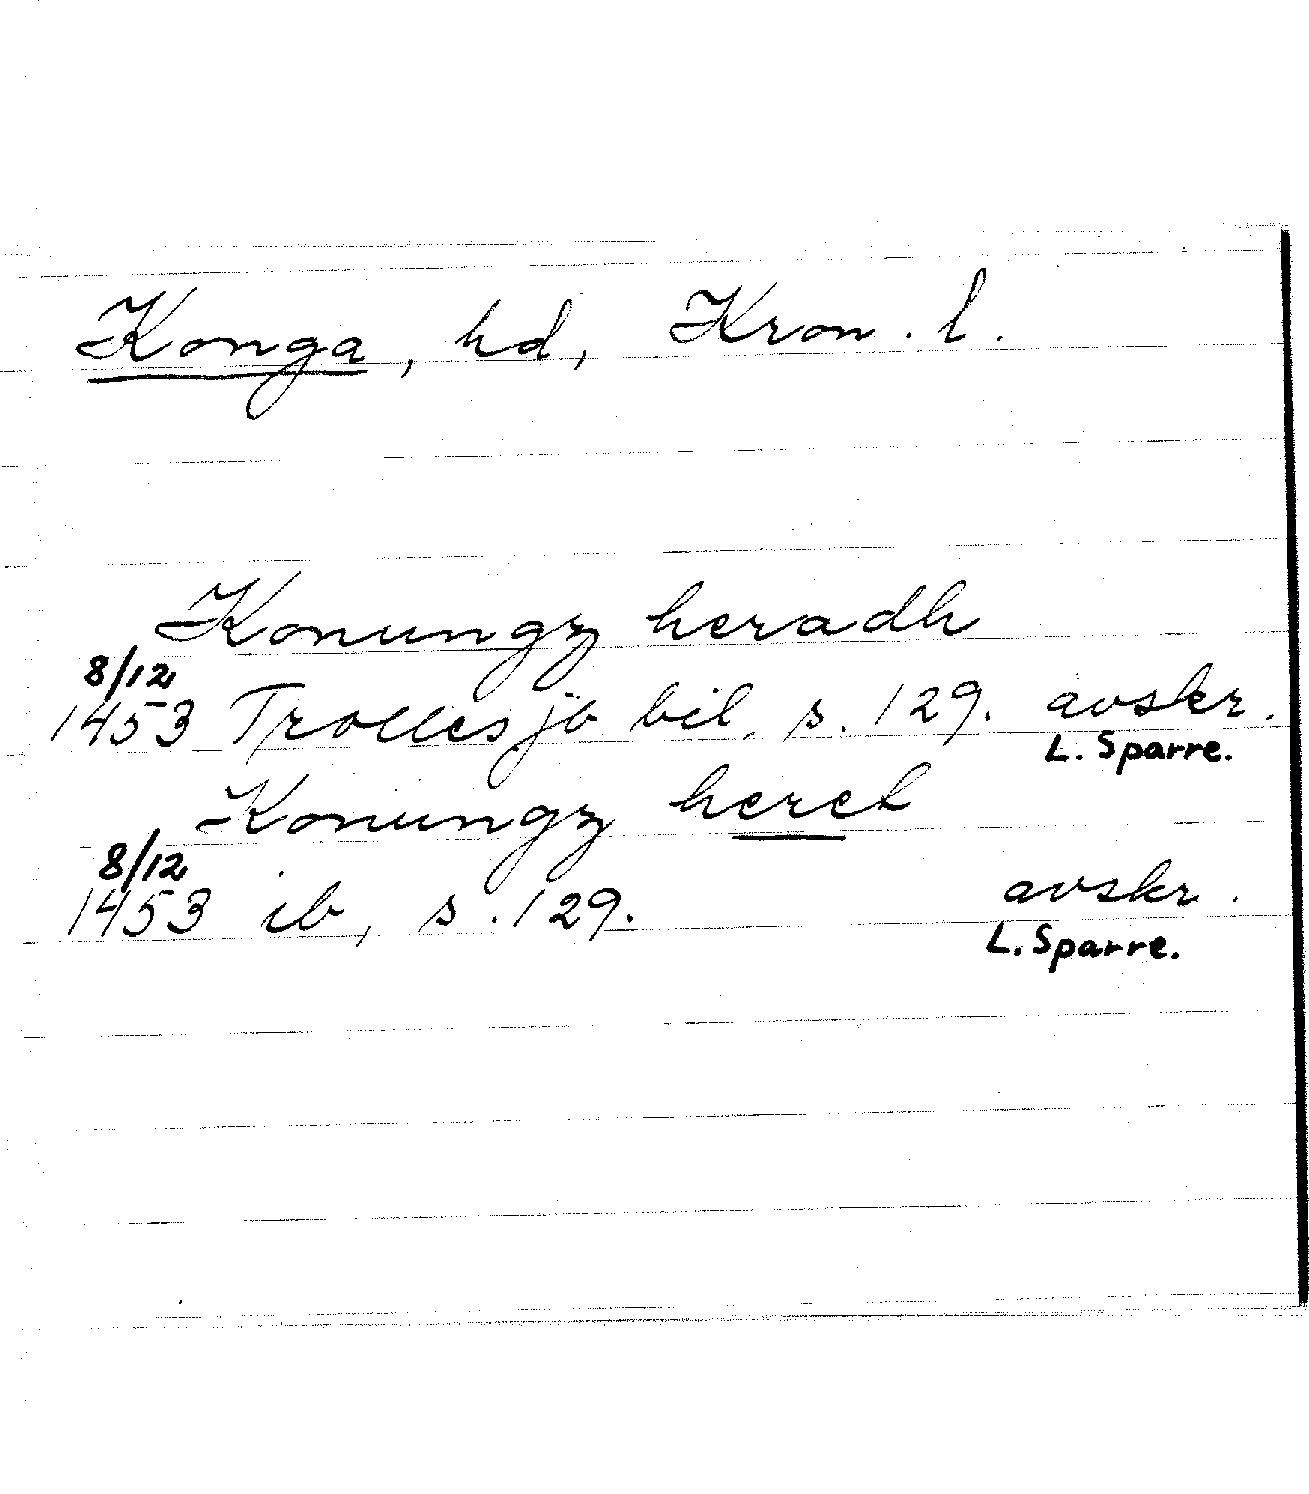 Konga, hd, Kron. l.
Konungz heradh
8/12
1453 Trollesjö bil. s. 129. avskr.
L. Sparre.
Konungz heret
8/12
1453 ib, s. 129. avskr.
L. Sparre.